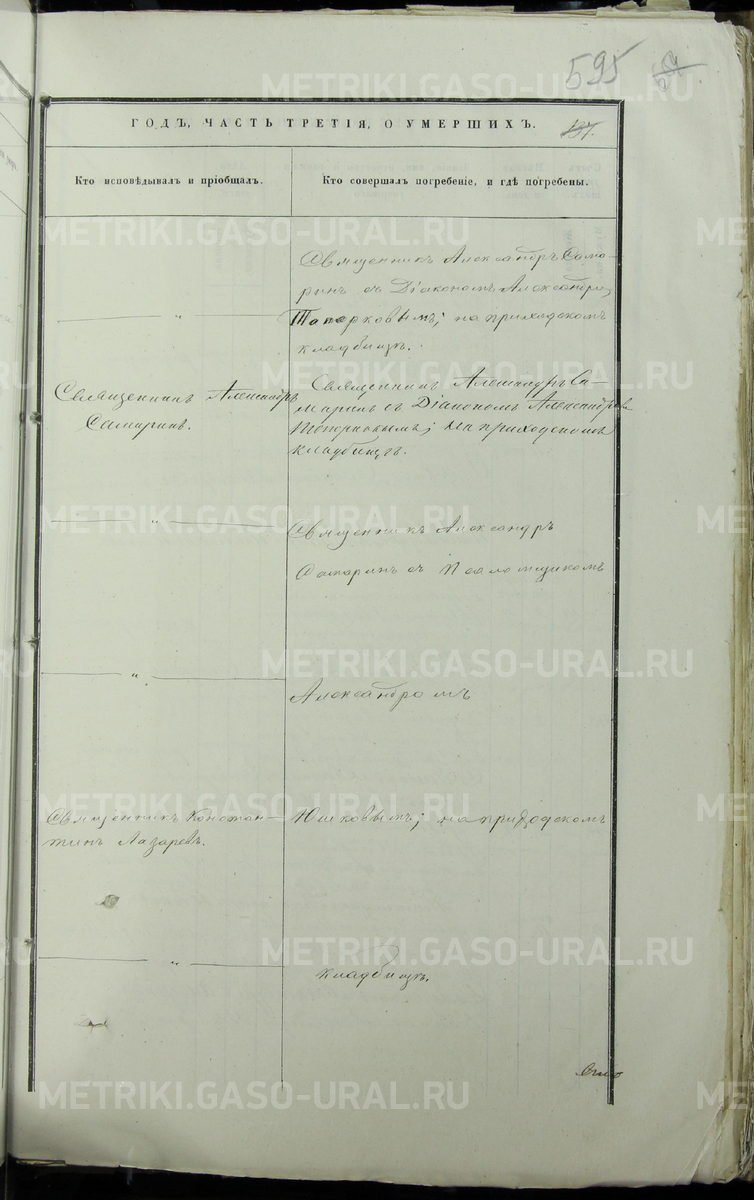 595
ГОДЪ, ЧАСТЬ ТРЕТІЯ, О УМЕРШИХЪ.
137.
Кто исповѣдывалъ и пріобщалъ.
Кто совершалъ погребеніе, и гдѣ погребены.
Священникъ Александръ Сама-
ринъ съ Діакономъ Александро
Топорковымъ; на приходскомъ
кладбищѣ.
"
Священникъ Александръ
Самаринъ.
Священникъ Александръ Са-
маринъ съ Діакономъ Александро
Топорковымъ; на приходскомъ
кладбищѣ.
"
Священникъ Александръ
Самаринъ съ Псаломщикомъ
"
Александромъ
Священникъ Констан-
тинъ Лазаревъ.
Юшковымъ; на приходскомъ
"
кладбищѣ.
METRIKI.GASO-URAL.RU
METRIKI.GASO-URAL.RU
METRIKI.GASO-URAL.RU
METRIKI.GASO-URAL.RU
METRIKI.GASO-URAL.RU
METRIKI.GASO-URAL.RU
METRIKI.GASO-URAL.RU
METRIKI.GASO-URAL.RU
METRIKI.GASO-URAL.RU
METRIKI.GASO-URAL.RU
METRIKI.GASO-URAL.RU
METRIKI.GASO-URAL.RU